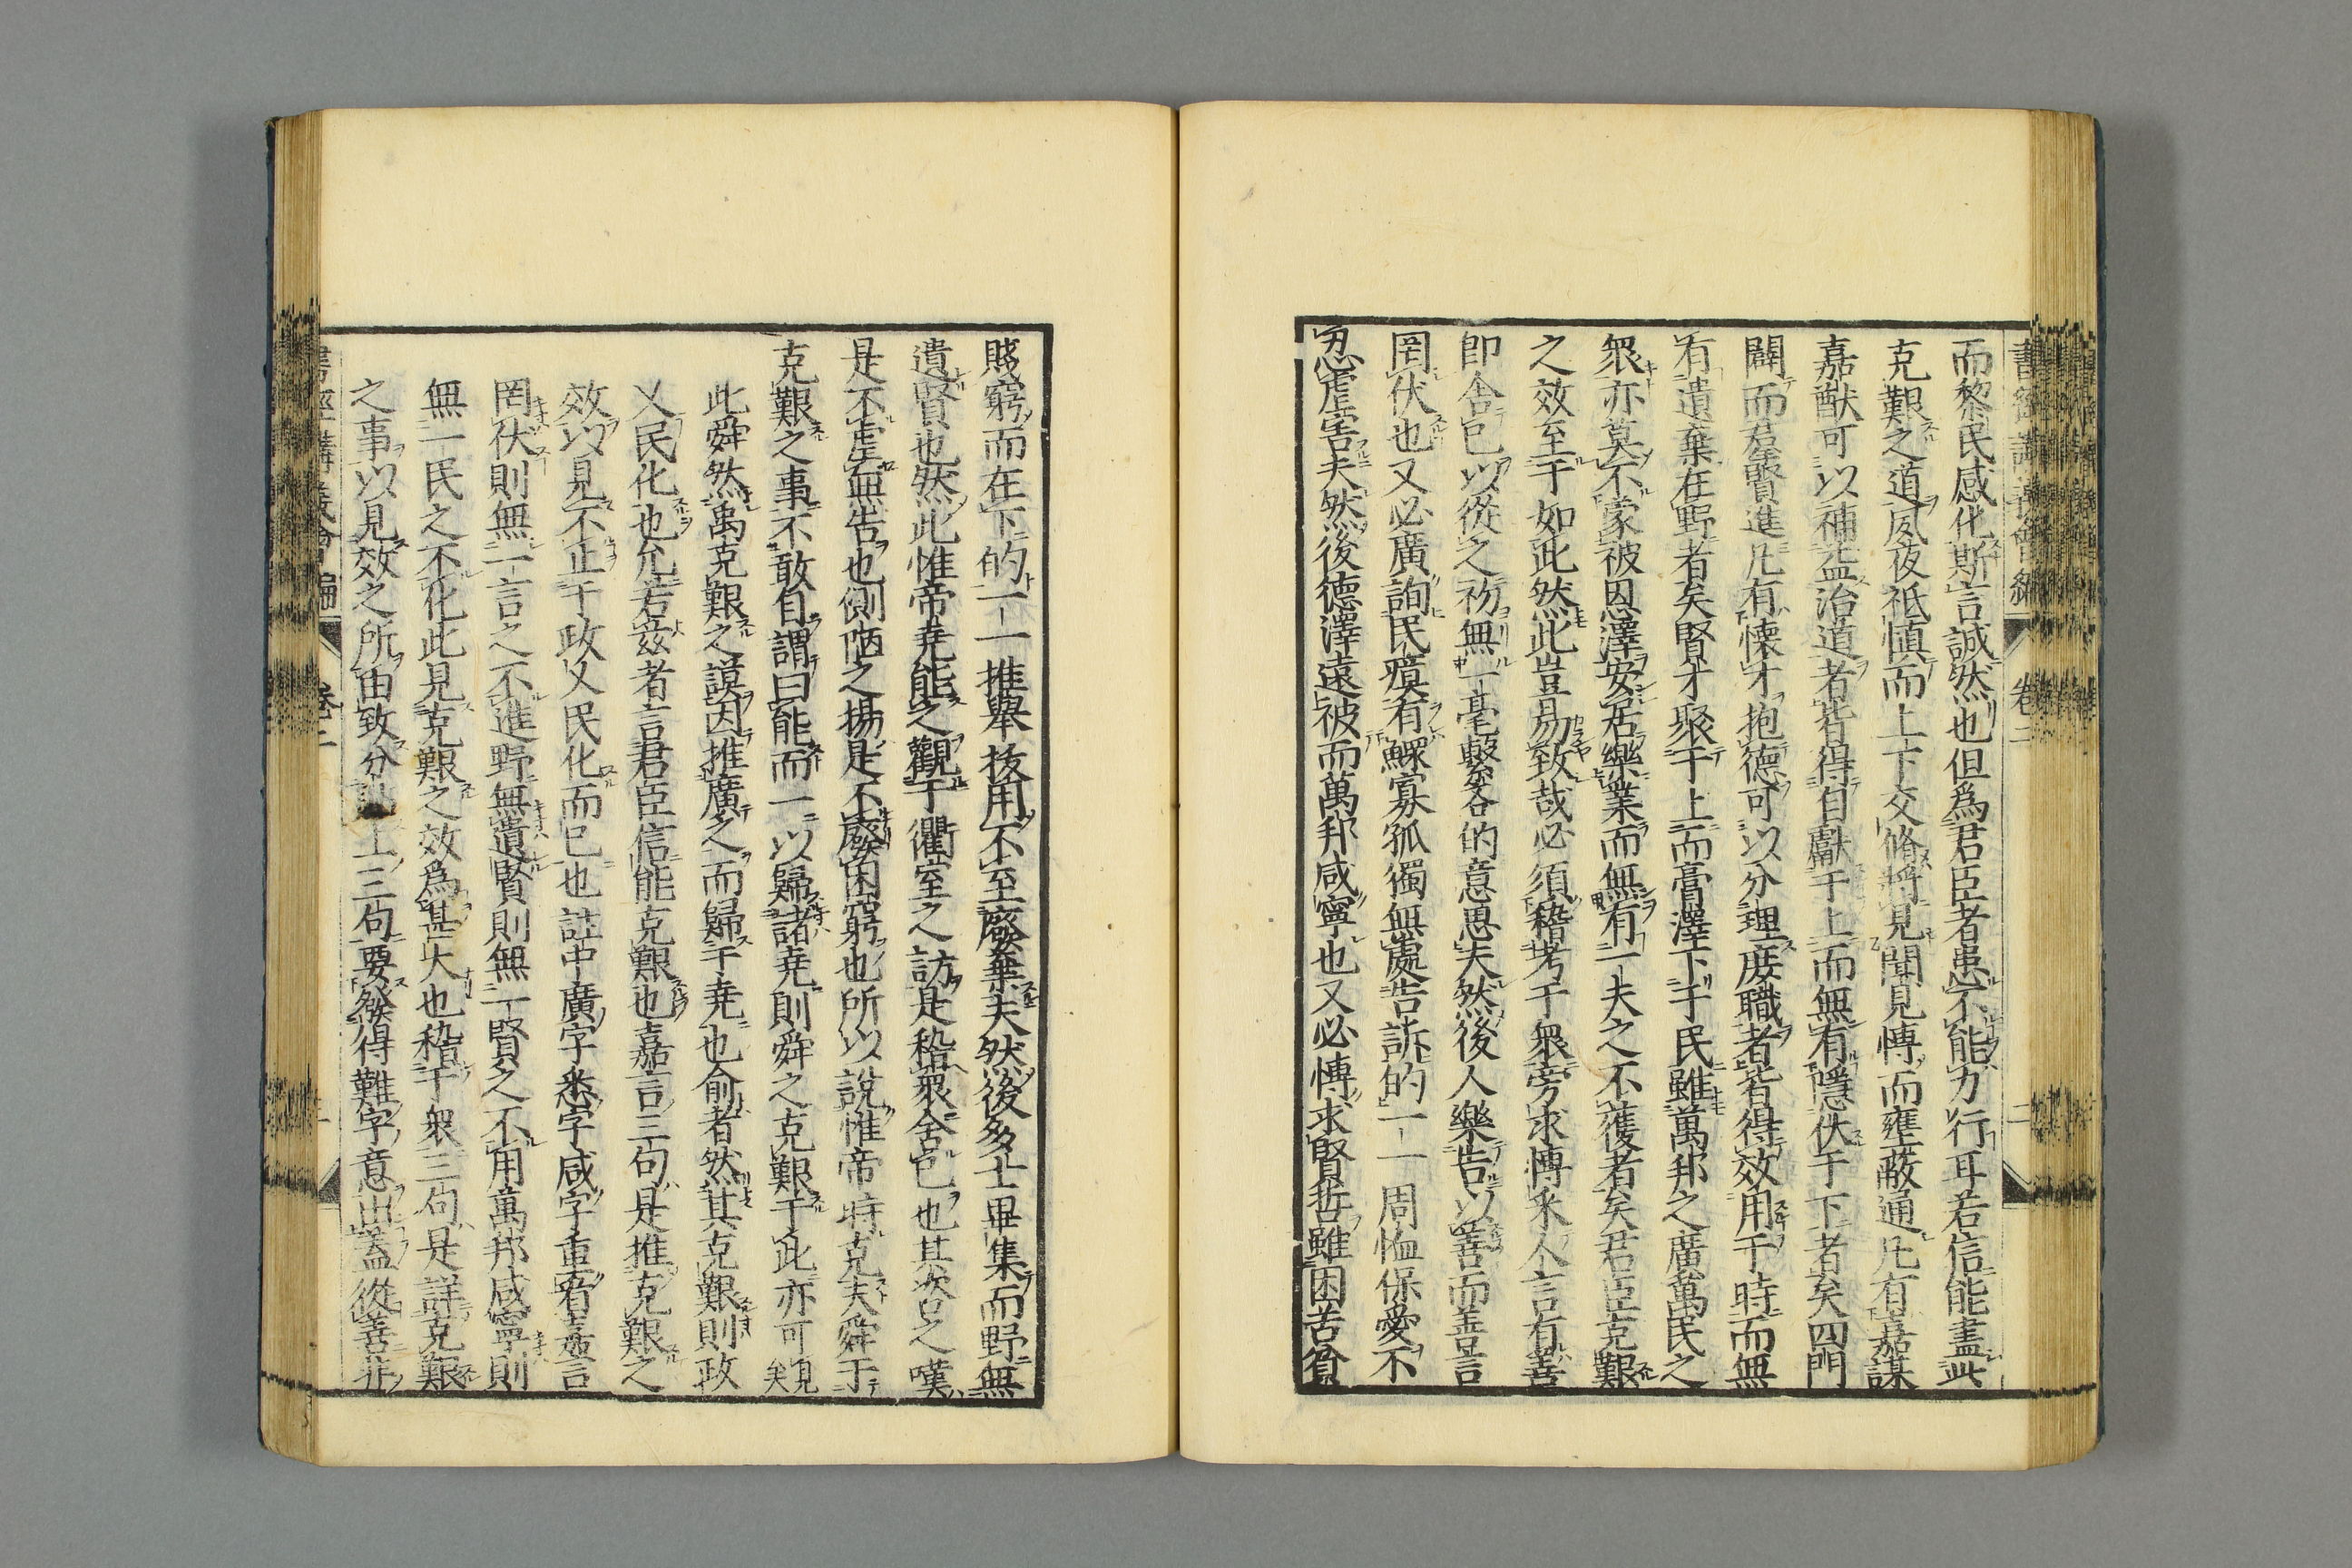 而黎民感化斯言誠然也但爲君臣者患不能力行耳若信能盡此
克艱之道夙夜祗慎而上下交脩將見聞見愽而壅蔽通凡有嘉謀
嘉猷可以補益治道者皆得自獻于上而無有隱伏于下者矣四門
闢而羣賢進凡有懷才抱德可以分理庶職者皆得效用于時而無
有遺棄在野者矣賢才聚于上而膏澤下于民雖萬邦之廣萬民之
衆亦莫不蒙被恩澤安居樂業而無有一夫之不獲者矣君臣克艱
之效至于如此然此豈易致哉必須稽考于衆旁求愽采人言有善
即舍已以從之初無一毫繫吝的意思夫然後人樂告以善而善言
罔伏也又必廣詢民瘼有鰥寡孤獨無處告訴的一一周恤保愛不
忍虐害夫然後德澤遠被而萬邦咸寧也又必愽求賢哲雖困苦貧
書經講義會編 卷二 二
賤窮而在下的一一推舉抜用不至廢棄夫然後多士畢集而野無
遺賢也然此惟帝堯能之觀于衢室之訪是稽衆舍已也其咨之嘆
是不虐無告也側陋之揚是不廢困窮也所以說惟帝時克夫舜于
克艱之事不敢自謂曰能而一以歸諸堯則舜之克艱于此亦可見矣
此舜然禹克艱之謨因推廣之而歸于堯也俞者然其克艱則政
乂民化也允若茲者言君臣信能克艱也嘉言三句是推克艱之
效以見不止于政乂民化而已也註中廣字悉字咸字重看嘉言
罔伏則無一言之不進野無遺賢則無一賢之不用萬邦咸寧則
無一民之不化此見克艱之效爲甚大也稽于衆三句是詳克艱
之事以見效之所由致分上三句要發得難字意出蓋從善非
書經講義會編 卷二